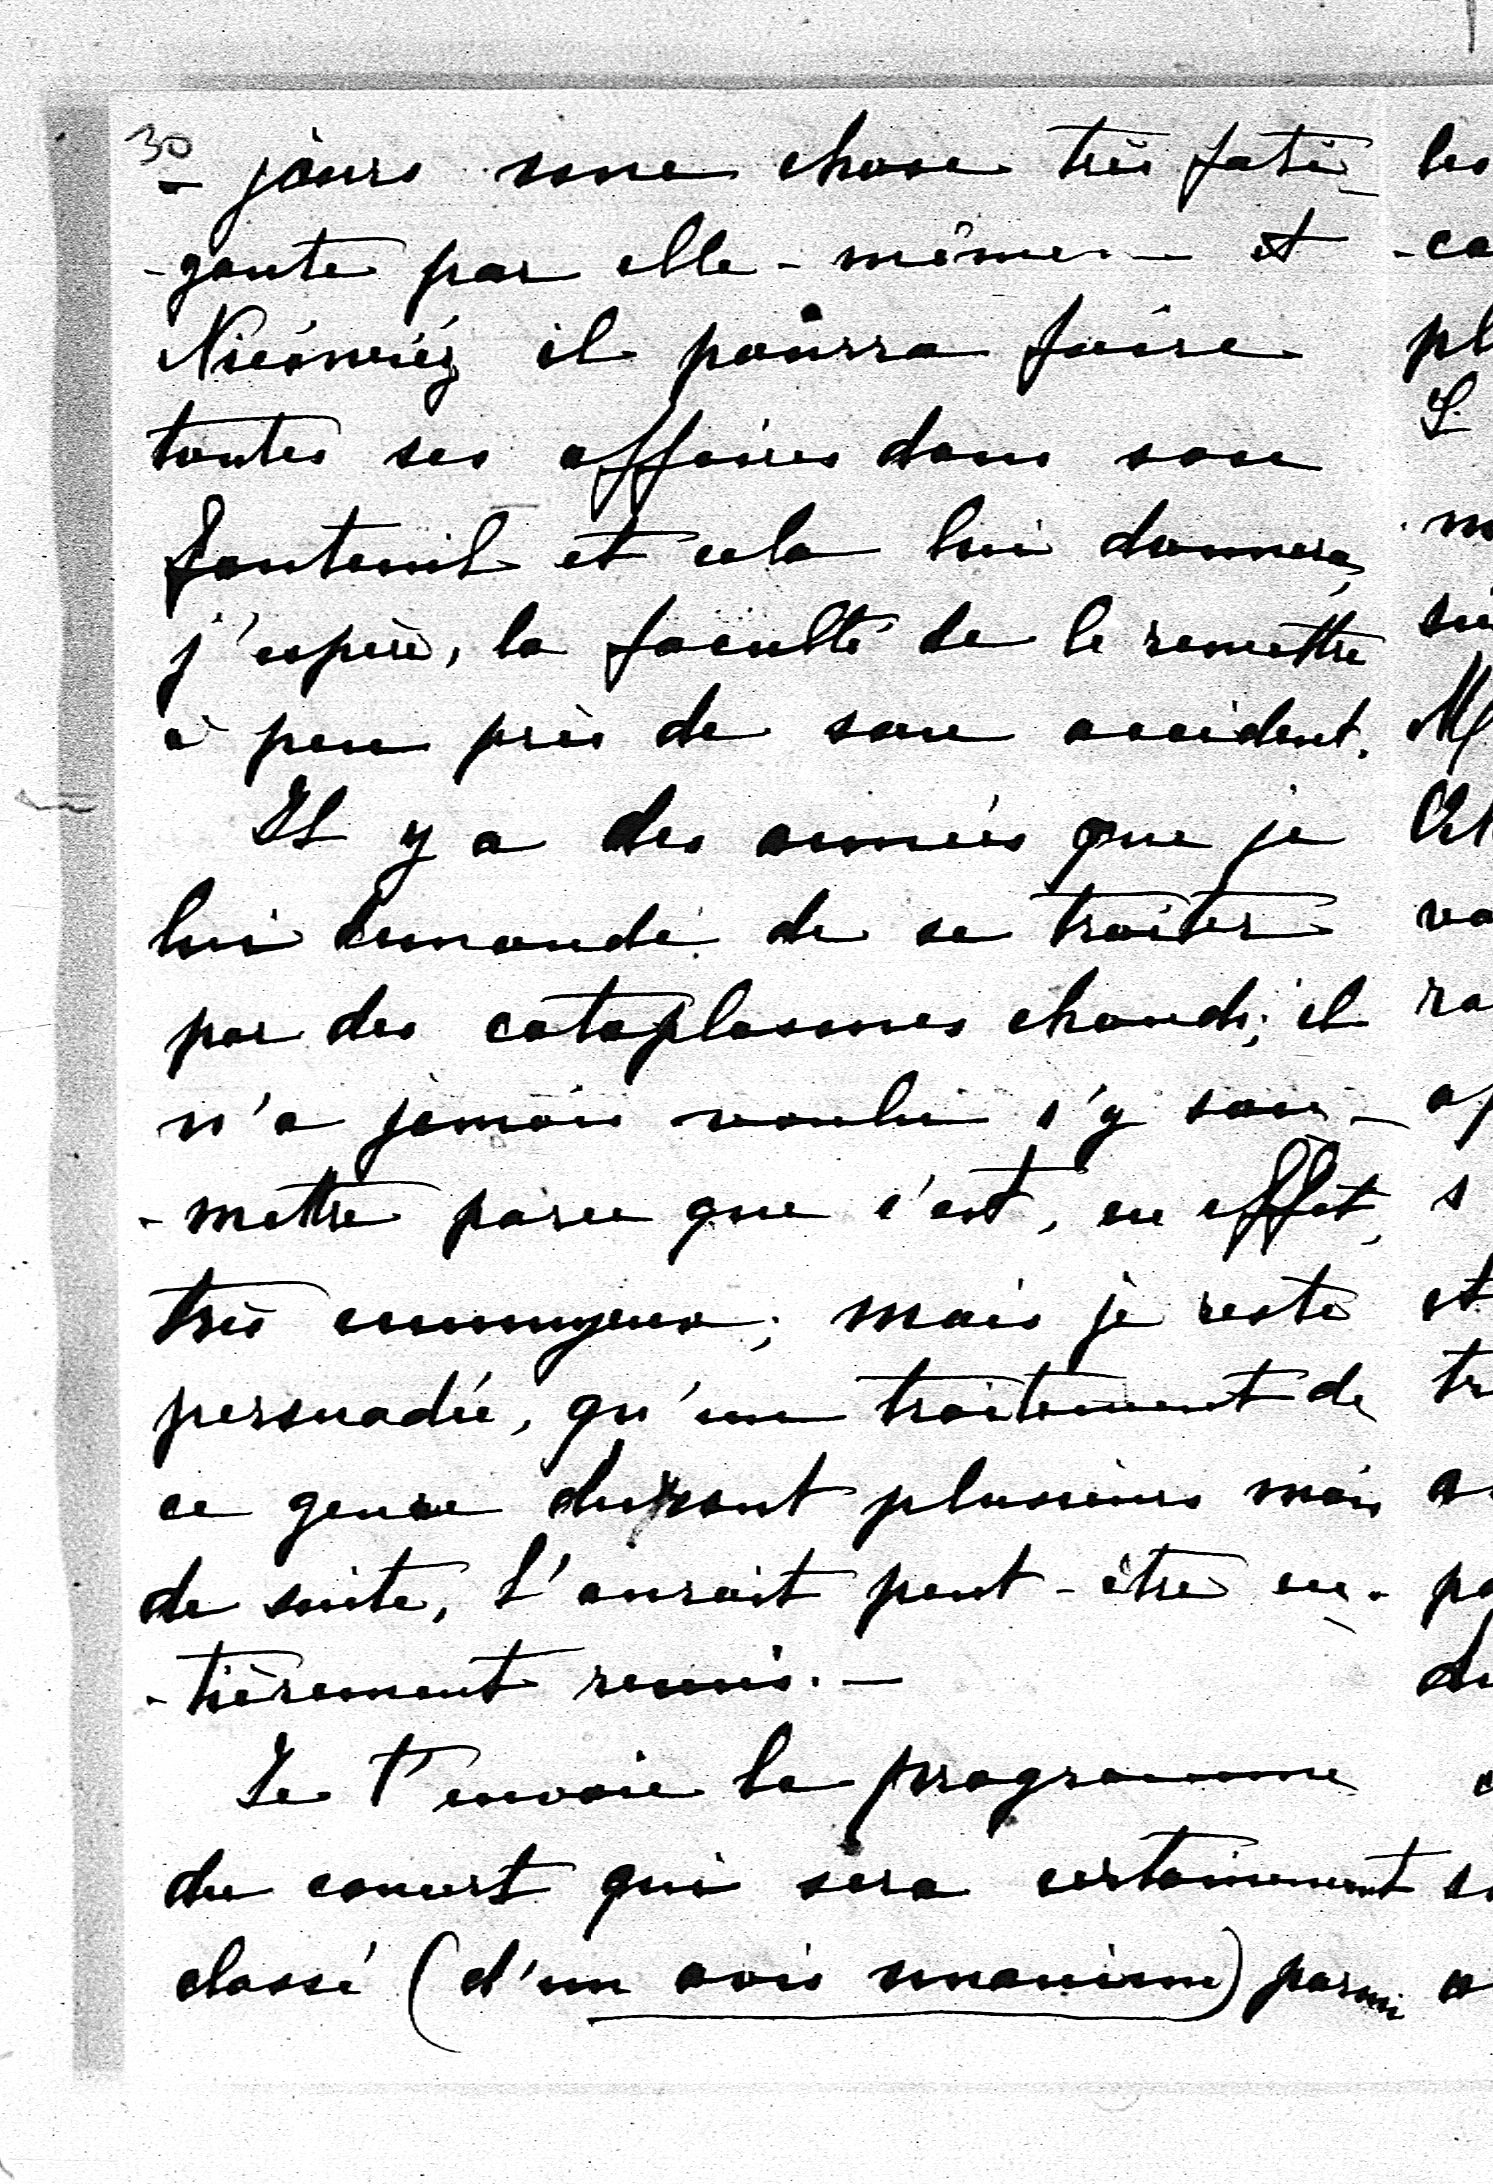 30
- jours une chose très fati-
-gante par elle-même - et
il pourra faire
toutes ses affaires dans son
fauteuil et cela lui donnera,
j'espère, la faculté de le remettre
à peu près de son accident.
Il y a des années que je
lui demande de se traiter
par des cataplasmes chauds; il
n'a jamais voulu s'y sou-
-mettre parce que c'est, en effet,
très ennuyeux; mais je reste
persuadée, qu'un traitement de
ce genre durant plusieurs mois
de suite, l'aurait peut-être en-
-tièrement remis. -
Je t'envoie le programme
du concert qui sera certainement
classé (d'un avis unanime) parmi